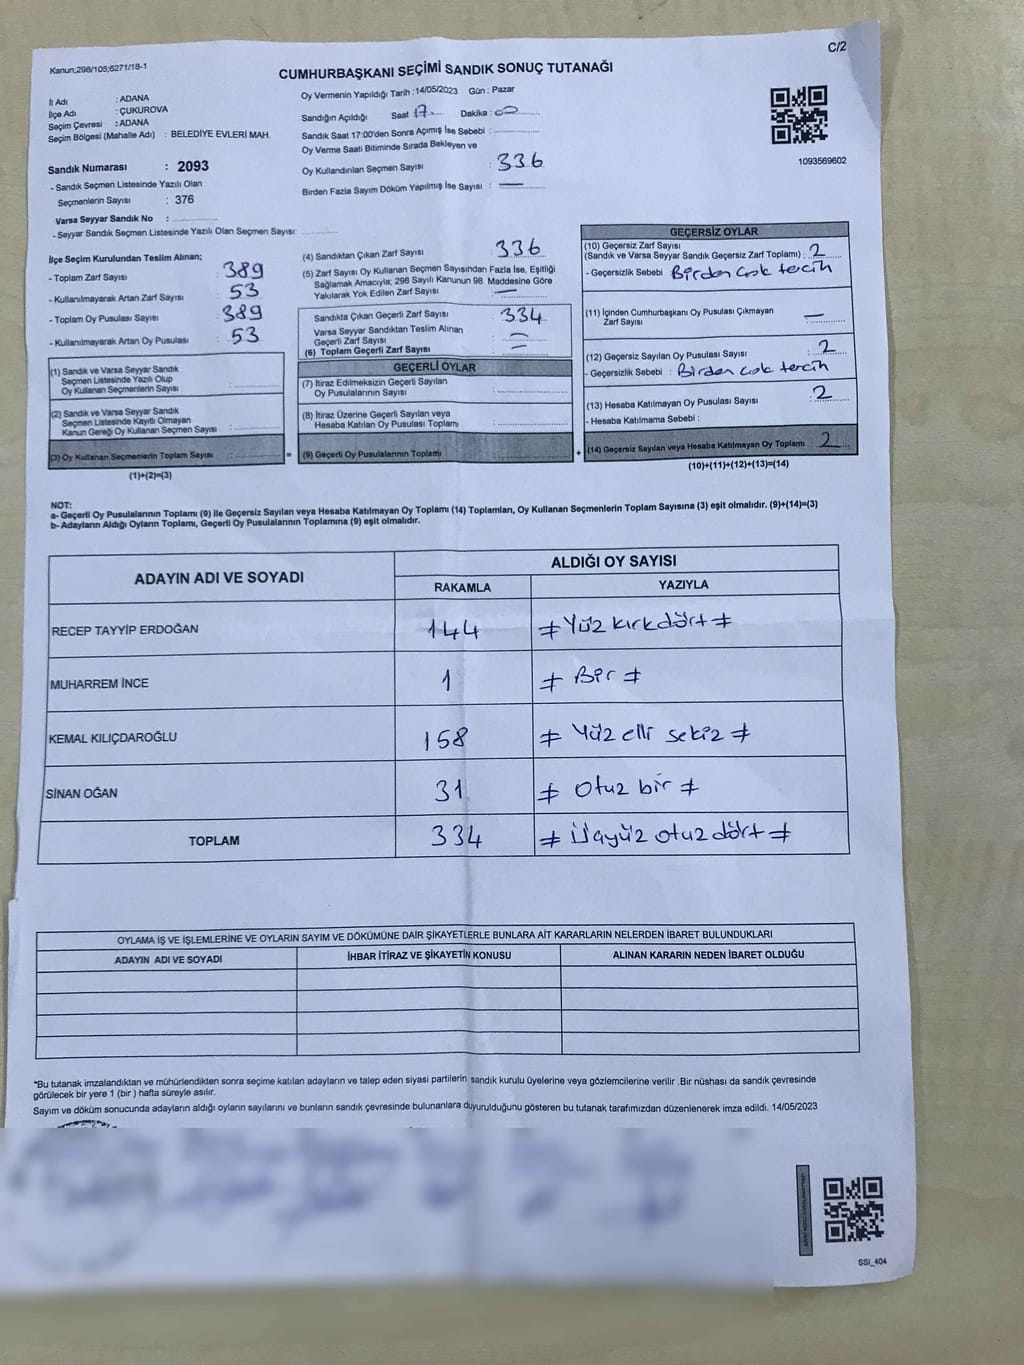 Kanun;298/105;6271/18-1
C/2
CUMHURBAŞKANI SEÇİMİ SANDIK SONUÇ TUTANAĞI
İl Adı : ADANA
İlçe Adı : ÇUKUROVA
Seçim Çevresi : ADANA
Seçim Bölgesi (Mahalle Adı) : BELEDİYE EVLERİ MAH.
Sandık Numarası : 2093
- Sandık Seçmen Listesinde Yazılı Olan
Seçmenlerin Sayısı : 376
Varsa Seyyar Sandık No :
- Seyyar Sandık Seçmen Listesinde Yazılı Olan Seçmen Sayısı:
Oy Vermenin Yapıldığı Tarih : 14/05/2023 Gün : Pazar
Sandığın Açıldığı Saat 17 Dakika : 00
Sandık Saat 17:00'den Sonra Açımış İse Sebebi :
Oy Verme Saati Bitiminde Sırada Bekleyen ve
Oy Kullandırılan Seçmen Sayısı : 336
Birden Fazla Sayım Döküm Yapılmış İse Sayısı : —
1093569602
İlçe Seçim Kurulundan Teslim Alınan;
- Toplam Zarf Sayısı : 389
- Kullanılmayarak Artan Zarf Sayısı : 53
- Toplam Oy Pusulası Sayısı : 389
- Kullanılmayarak Artan Oy Pusulası : 53
(1) Sandık ve Varsa Seyyar Sandık
Seçmen Listesinde Yazılı Olup
Oy Kullanan Seçmenlerin Sayısı :
(2) Sandık ve Varsa Seyyar Sandık
Seçmen Listesinde Kayıtlı Olmayan
Kanun Gereği Oy Kullanan Seçmen Sayısı :
(3) Oy Kullanan Seçmenlerin Toplam Sayısı :
(1)+(2)=(3)
(4) Sandıktan Çıkan Zarf Sayısı : 336
(5) Zarf Sayısı Oy Kullanan Seçmen Sayısından Fazla İse, Eşitliği
Sağlamak Amacıyla; 298 Sayılı Kanunun 98 Maddesine Göre
Yakılarak Yok Edilen Zarf Sayısı : —
Sandıkta Çıkan Geçerli Zarf Sayısı : 334
Varsa Seyyar Sandıktan Teslim Alınan
Geçerli Zarf Sayısı : —
(6) Toplam Geçerli Zarf Sayısı : —
GEÇERLİ OYLAR
(7) İtiraz Edilmeksizin Geçerli Sayılan
Oy Pusulalarının Sayısı :
(8) İtiraz Üzerine Geçerli Sayılan veya
Hesaba Katılan Oy Pusulası Toplamı :
= (9) Geçerli Oy Pusulalarının Toplamı :
GEÇERSİZ OYLAR
(10) Geçersiz Zarf Sayısı
(Sandık ve Varsa Seyyar Sandık Geçersiz Zarf Toplamı) : 2
- Geçersizlik Sebebi : Birden çok tercih
(11) İçinden Cumhurbaşkanı Oy Pusulası Çıkmayan
Zarf Sayısı : —
(12) Geçersiz Sayılan Oy Pusulası Sayısı : 2
- Geçersizlik Sebebi : Birden çok tercih
(13) Hesaba Katılmayan Oy Pusulası Sayısı : 2
- Hesaba Katılmama Sebebi :
+ (14) Geçersiz Sayılan veya Hesaba Katılmayan Oy Toplamı : 2
(10)+(11)+(12)+(13)=(14)
NOT:
a- Geçerli Oy Pusulalarının Toplamı (9) ile Geçersiz Sayılan veya Hesaba Katılmayan Oy Toplamı (14) Toplamları, Oy Kullanan Seçmenlerin Toplam Sayısına (3) eşit olmalıdır. (9)+(14)=(3)
b- Adayların Aldığı Oyların Toplamı, Geçerli Oy Pusulalarının Toplamına (9) eşit olmalıdır.
ADAYIN ADI VE SOYADI ALDIĞI OY SAYISI
RAKAMLA YAZIYLA
RECEP TAYYİP ERDOĞAN 144 # Yüz kırk dört #
MUHARREM İNCE 1 # Bir #
KEMAL KILIÇDAROĞLU 158 # Yüz elli sekiz #
SİNAN OĞAN 31 # Otuz bir #
TOPLAM 334 # Üçyüz otuz dört #
OYLAMA İŞ VE İŞLEMLERİNE VE OYLARIN SAYIM VE DÖKÜMÜNE DAİR ŞİKAYETLERLE BUNLARA AİT KARARLARIN NELERDEN İBARET BULUNDUKLARI
ADAYIN ADI VE SOYADI İHBAR İTİRAZ VE ŞİKAYETİN KONUSU ALINAN KARARIN NEDEN İBARET OLDUĞU
*Bu tutanak imzalandıktan ve mühürlendikten sonra seçime katılan adayların ve talep eden siyasi partilerin sandık kurulu üyelerine veya gözlemcilerine verilir .Bir nüshası da sandık çevresinde
görülecek bir yere 1 (bir ) hafta süreyle asılır.
Sayım ve döküm sonucunda adayların aldığı oyların sayılarını ve bunların sandık çevresinde bulunanlara duyurulduğunu gösteren bu tutanak tarafımızdan düzenlenerek imza edildi. 14/05/2023
SSI_404